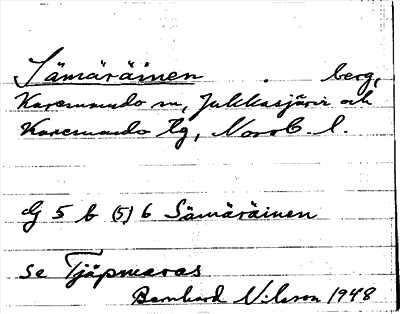 Sämäräinen . berg,
Karesuando sn, Jukkasjärvi och
Karesuando lg, Norrb. l.
GJ 5 b (5) 6 Sämäräinen
se Tjäpmaras
Bernhard Nilsson 1948